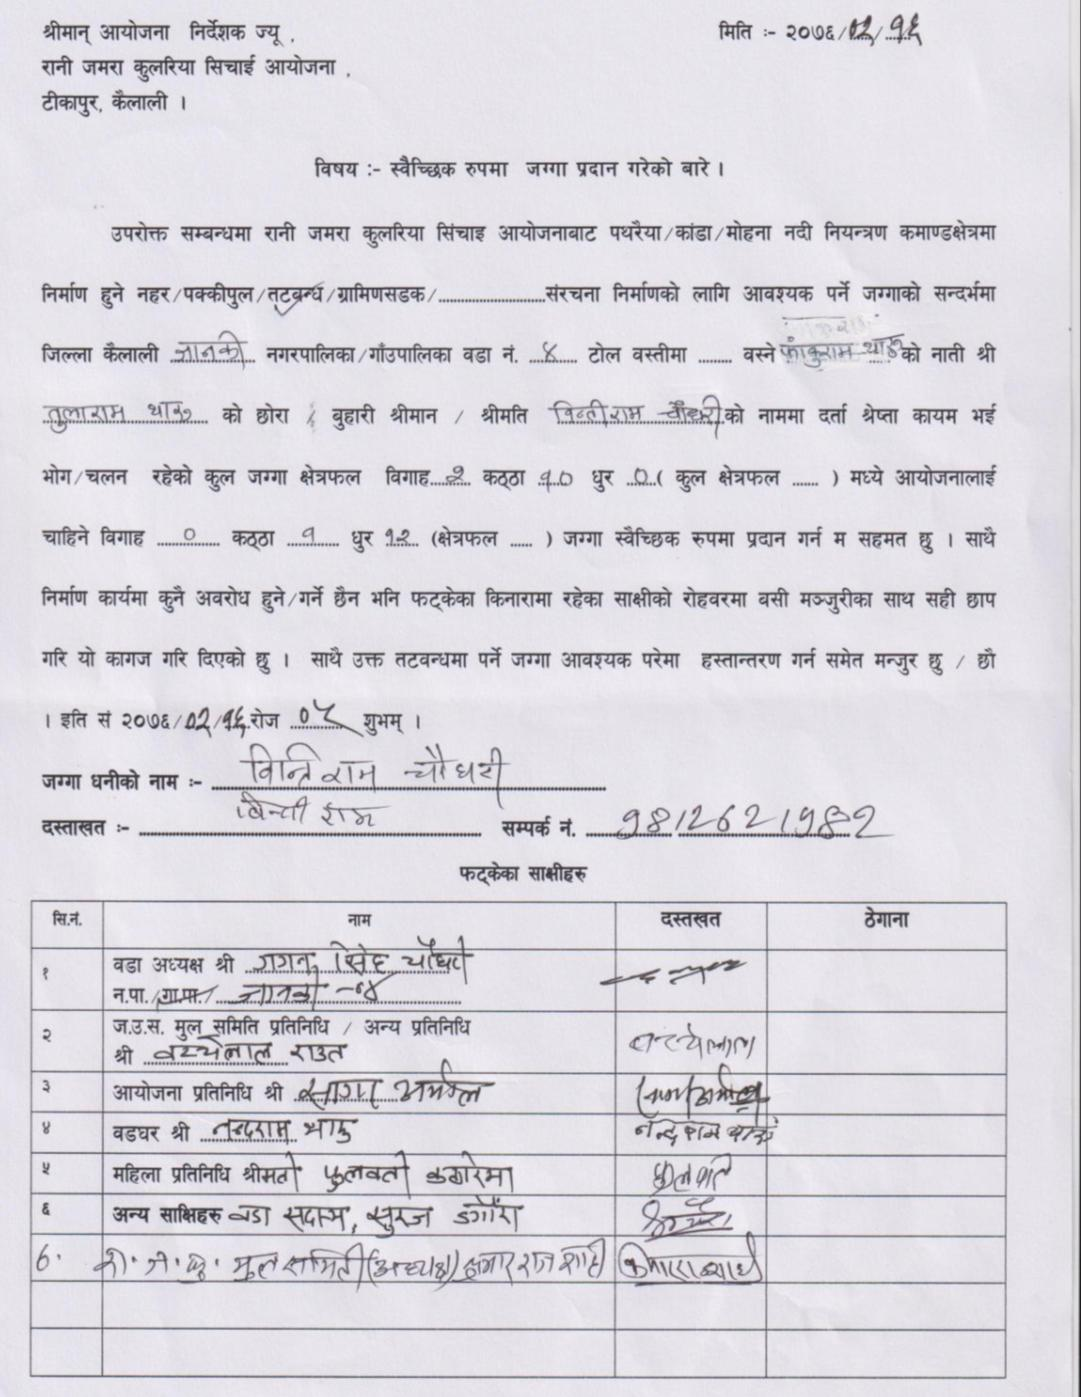 श्रीमान् आयोजना निर्देशक ज्यू .
मिति :- २०७६/०२/१६
रानी जमरा कुलरिया सिचाई आयोजना ,
टीकापुर, कैलाली ।
विषय :- स्वैच्छिक रुपमा जग्गा प्रदान गरेको बारे ।
उपरोक्त सम्बन्धमा रानी जमरा कुलरिया सिंचाइ आयोजनाबाट पथरैया/कांडा/मोहना नदी नियन्त्रण कमाण्डक्षेत्रमा
निर्माण हुने नहर/पक्कीपुल/तटबन्ध/ग्रामिणसडक/........................संरचना निर्माणको लागि आवश्यक पर्ने जग्गाको सन्दर्भमा
जिल्ला कैलाली जानकी नगरपालिका/गाँउपालिका वडा नं. ४ टोल वस्तीमा ........ वस्ने फांकुराम थारु को नाती श्री
तुलाराम थारु को छोरा / बुहारी श्रीमान / श्रीमति विन्तीराम चौधरी को नाममा दर्ता श्रेष्ता कायम भई
भोग/चलन रहेको कुल जग्गा क्षेत्रफल विगाह २ कठ्ठा १० धुर ०( कुल क्षेत्रफल ...... ) मध्ये आयोजनालाई
चाहिने विगाह ० कठ्ठा १ धुर १२ (क्षेत्रफल ..... ) जग्गा स्वैच्छिक रुपमा प्रदान गर्न म सहमत छु । साथै
निर्माण कार्यमा कुनै अवरोध हुने/गर्ने छैन भनि फट्केका किनारामा रहेका साक्षीको रोहवरमा वसी मञ्जुरीका साथ सही छाप
गरि यो कागज गरि दिएको छु । साथै उक्त तटवन्धमा पर्ने जग्गा आवश्यक परेमा हस्तान्तरण गर्न समेत मन्जुर छु / छौ
। इति सं २०७६/०२/१६ रोज ०५ शुभम् ।
जग्गा धनीको नाम :- विन्तिराम चौधरी
दस्ताखत :- विन्ती राम सम्पर्क नं. 9812621982
फट्केका साक्षीहरु
सि.नं. नाम दस्तखत ठेगाना
१ वडा अध्यक्ष श्री गगन सिंह चौधरी
न.पा./गा.पा./ जानकी -०४
२ ज.उ.स. मुल समिति प्रतिनिधि / अन्य प्रतिनिधि
श्री बच्चेलाल राउत
३ आयोजना प्रतिनिधि श्री सागर अर्याल
४ वडघर श्री नन्दराम थारु नन्दराम थारु
५ महिला प्रतिनिधि श्रीमती फुलवती कठरिया फुलवति
६ अन्य साक्षिहरु वडा सदस्य, सुरज डगौरा
रा. ज. कु. मुल समिति (अध्यक्ष)